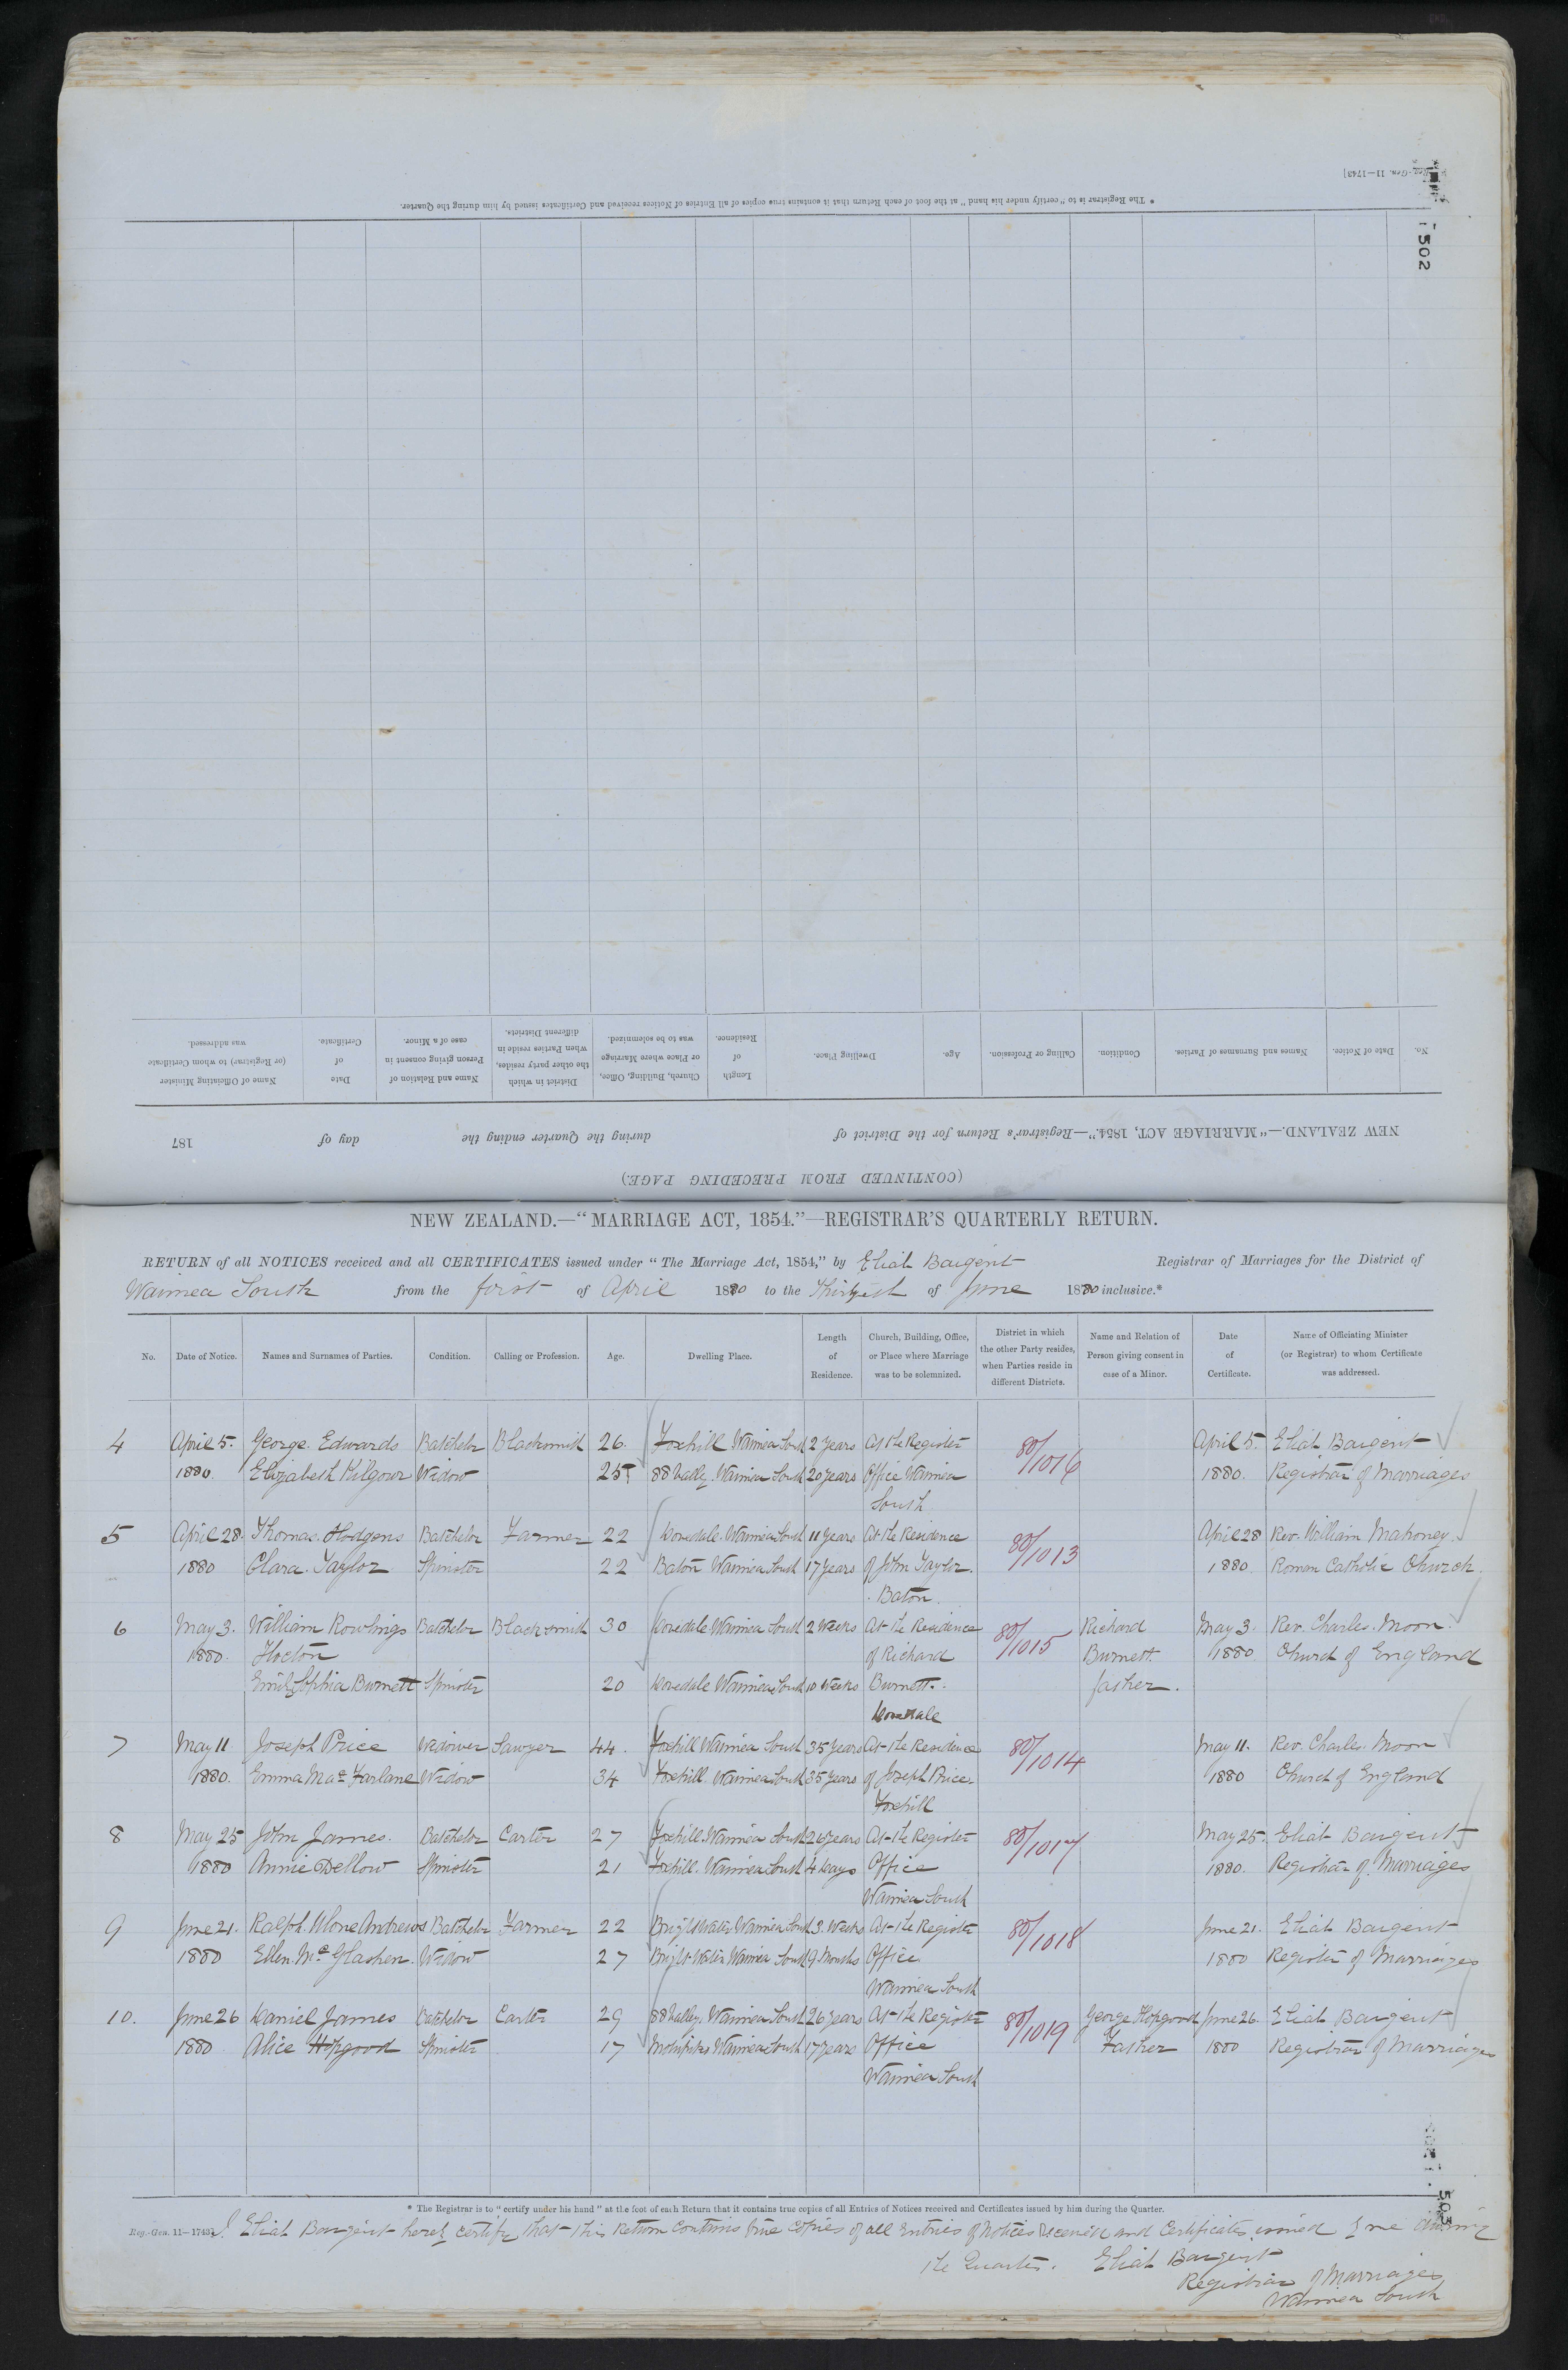 Reg.-Gen. 11—1743]
502
* The Registrar is to "certify under his hand" at the foot of each Return that it contains true copies of all Entries of Notices received and Certificates issued by him during the Quarter.
(CONTINUED FROM PRECEDING PAGE.)
NEW ZEALAND.—"MARRIAGE ACT, 1854."—Registrar's Return for the District of during the Quarter ending the day of 187
No. Date of Notice. Names and Surnames of Parties. Condition. Calling or Profession. Age. Dwelling Place. Length of Residence. Church, Building, Office, or Place where Marriage was to be solemnized. District in which the other party resides, when Parties reside in different Districts. Name and Relation of Person giving consent in case of a Minor. Date of Certificate. Name of Officiating Minister (or Registrar) to whom Certificate was addressed.
NEW ZEALAND.—"MARRIAGE ACT, 1854."—REGISTRAR'S QUARTERLY RETURN.
RETURN of all NOTICES received and all CERTIFICATES issued under "The Marriage Act, 1854," by Eliah Baigent Registrar of Marriages for the District of
Waimea South from the first of April 1880 to the Thirtieth of June 1880 inclusive.*
No. Date of Notice. Names and Surnames of Parties. Condition. Calling or Profession. Age. Dwelling Place. Length of Residence. Church, Building, Office, or Place where Marriage was to be solemnized. District in which the other Party resides, when Parties reside in different Districts. Name and Relation of Person giving consent in case of a Minor. Date of Certificate. Name of Officiating Minister (or Registrar) to whom Certificate was addressed.
4 April 5. George Edwards Batchelor Blacksmith 26. Foxhill Waimea South 2 years At the Register 80/1016 April 5. Eliah Baigent
1880. Elizabeth Kilgour Widow 25 88 Vally. Waimea South 20 years Office Waimea 1880. Registrar of Marriages
South
5 April 28. Thomas Hodgens Batchelor Farmer 22 Dovedale. Waimea South 11 years At the Residence 80/1013 April 28 Rev. William Mahoney.
1880 Clara Taylor Spinster 22 Baton Waimea South 17 years of John Taylor. 1880. Roman Catholic Church.
Baton.
6 May 3. William Rowlings Batchelor Blacksmith 30 Dovedale Waimea South 2 Weeks At the Residence 80/1015 Richard May 3. Rev. Charles Moon.
1880. Hocton of Richard Burnett 1880 Church of England
Emily Sophia Burnett Spinster 20 Dovedale Waimea South 10 Weeks Burnett. father.
Dovedale
7 May 11 Joseph Price Widower Sawyer 44. Foxhill Waimea South 35 years At the Residence 80/1014 May 11. Rev. Charles Moon
1880. Emma Mac Farlane Widow 34 Foxhill. Waimea South 35 years of Joseph Price. 1880 Church of England
Foxhill
8 May 25 John James. Batchelor Carter 27 Foxhill. Waimea South 26 years At the Register 80/1017 May 25. Eliah Baigent
1880 Annie Dellow Spinster 21 Foxhill. Waimea South 4 Days Office 1880. Registrar of Marriages
Waimea South
9 June 21. Ralph Andrews Batchelor Farmer 22 BrightWater Waimea South 3. Weeks At the Register 80/1018 June 21. Eliah Baigent
1880 Ellen Mc Glashen. Widow 27 Bright Water Waimea South 9 Months Office 1880 Register of Marriages
Waimea South
10. June 26 Daniel James Batchelor Carter 29 88 Valley. Waimea South 26 years At the Register 80/1019 George Hopgood June 26. Eliah Baigent
1880 Alice Hopgood Spinster 17 Waimea South 17 years Office Father 1880 Registrar of Marriages
Waimea South
* The Registrar is to "certify under his hand" at the foot of each Return that it contains true copies of all Entries of Notices received and Certificates issued by him during the Quarter.
Reg.-Gen. 11—1743] I Eliah Baigent hereby certify that this Return Contains true Copies of all Entries of Notices Received and Certificates issued by me during
the Quarter. Eliah Baigent
Registrar of Marriages
Waimea South
503